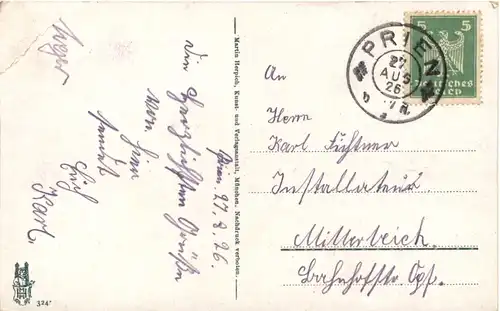 Prien 27.8.26.
Die herzlichsten Grüße
von hier
sendet
Euch
Karl.
Martin Herpich, Kunst- und Verlagsanstalt, München. Nachdruck verboten.
324
PRIEN
27
AUG
26
5 5
Deutsches
Reich
An
Herrn
Karl Fichtner
Installateur
Mitterteich
Bahnhofstr. Opf.